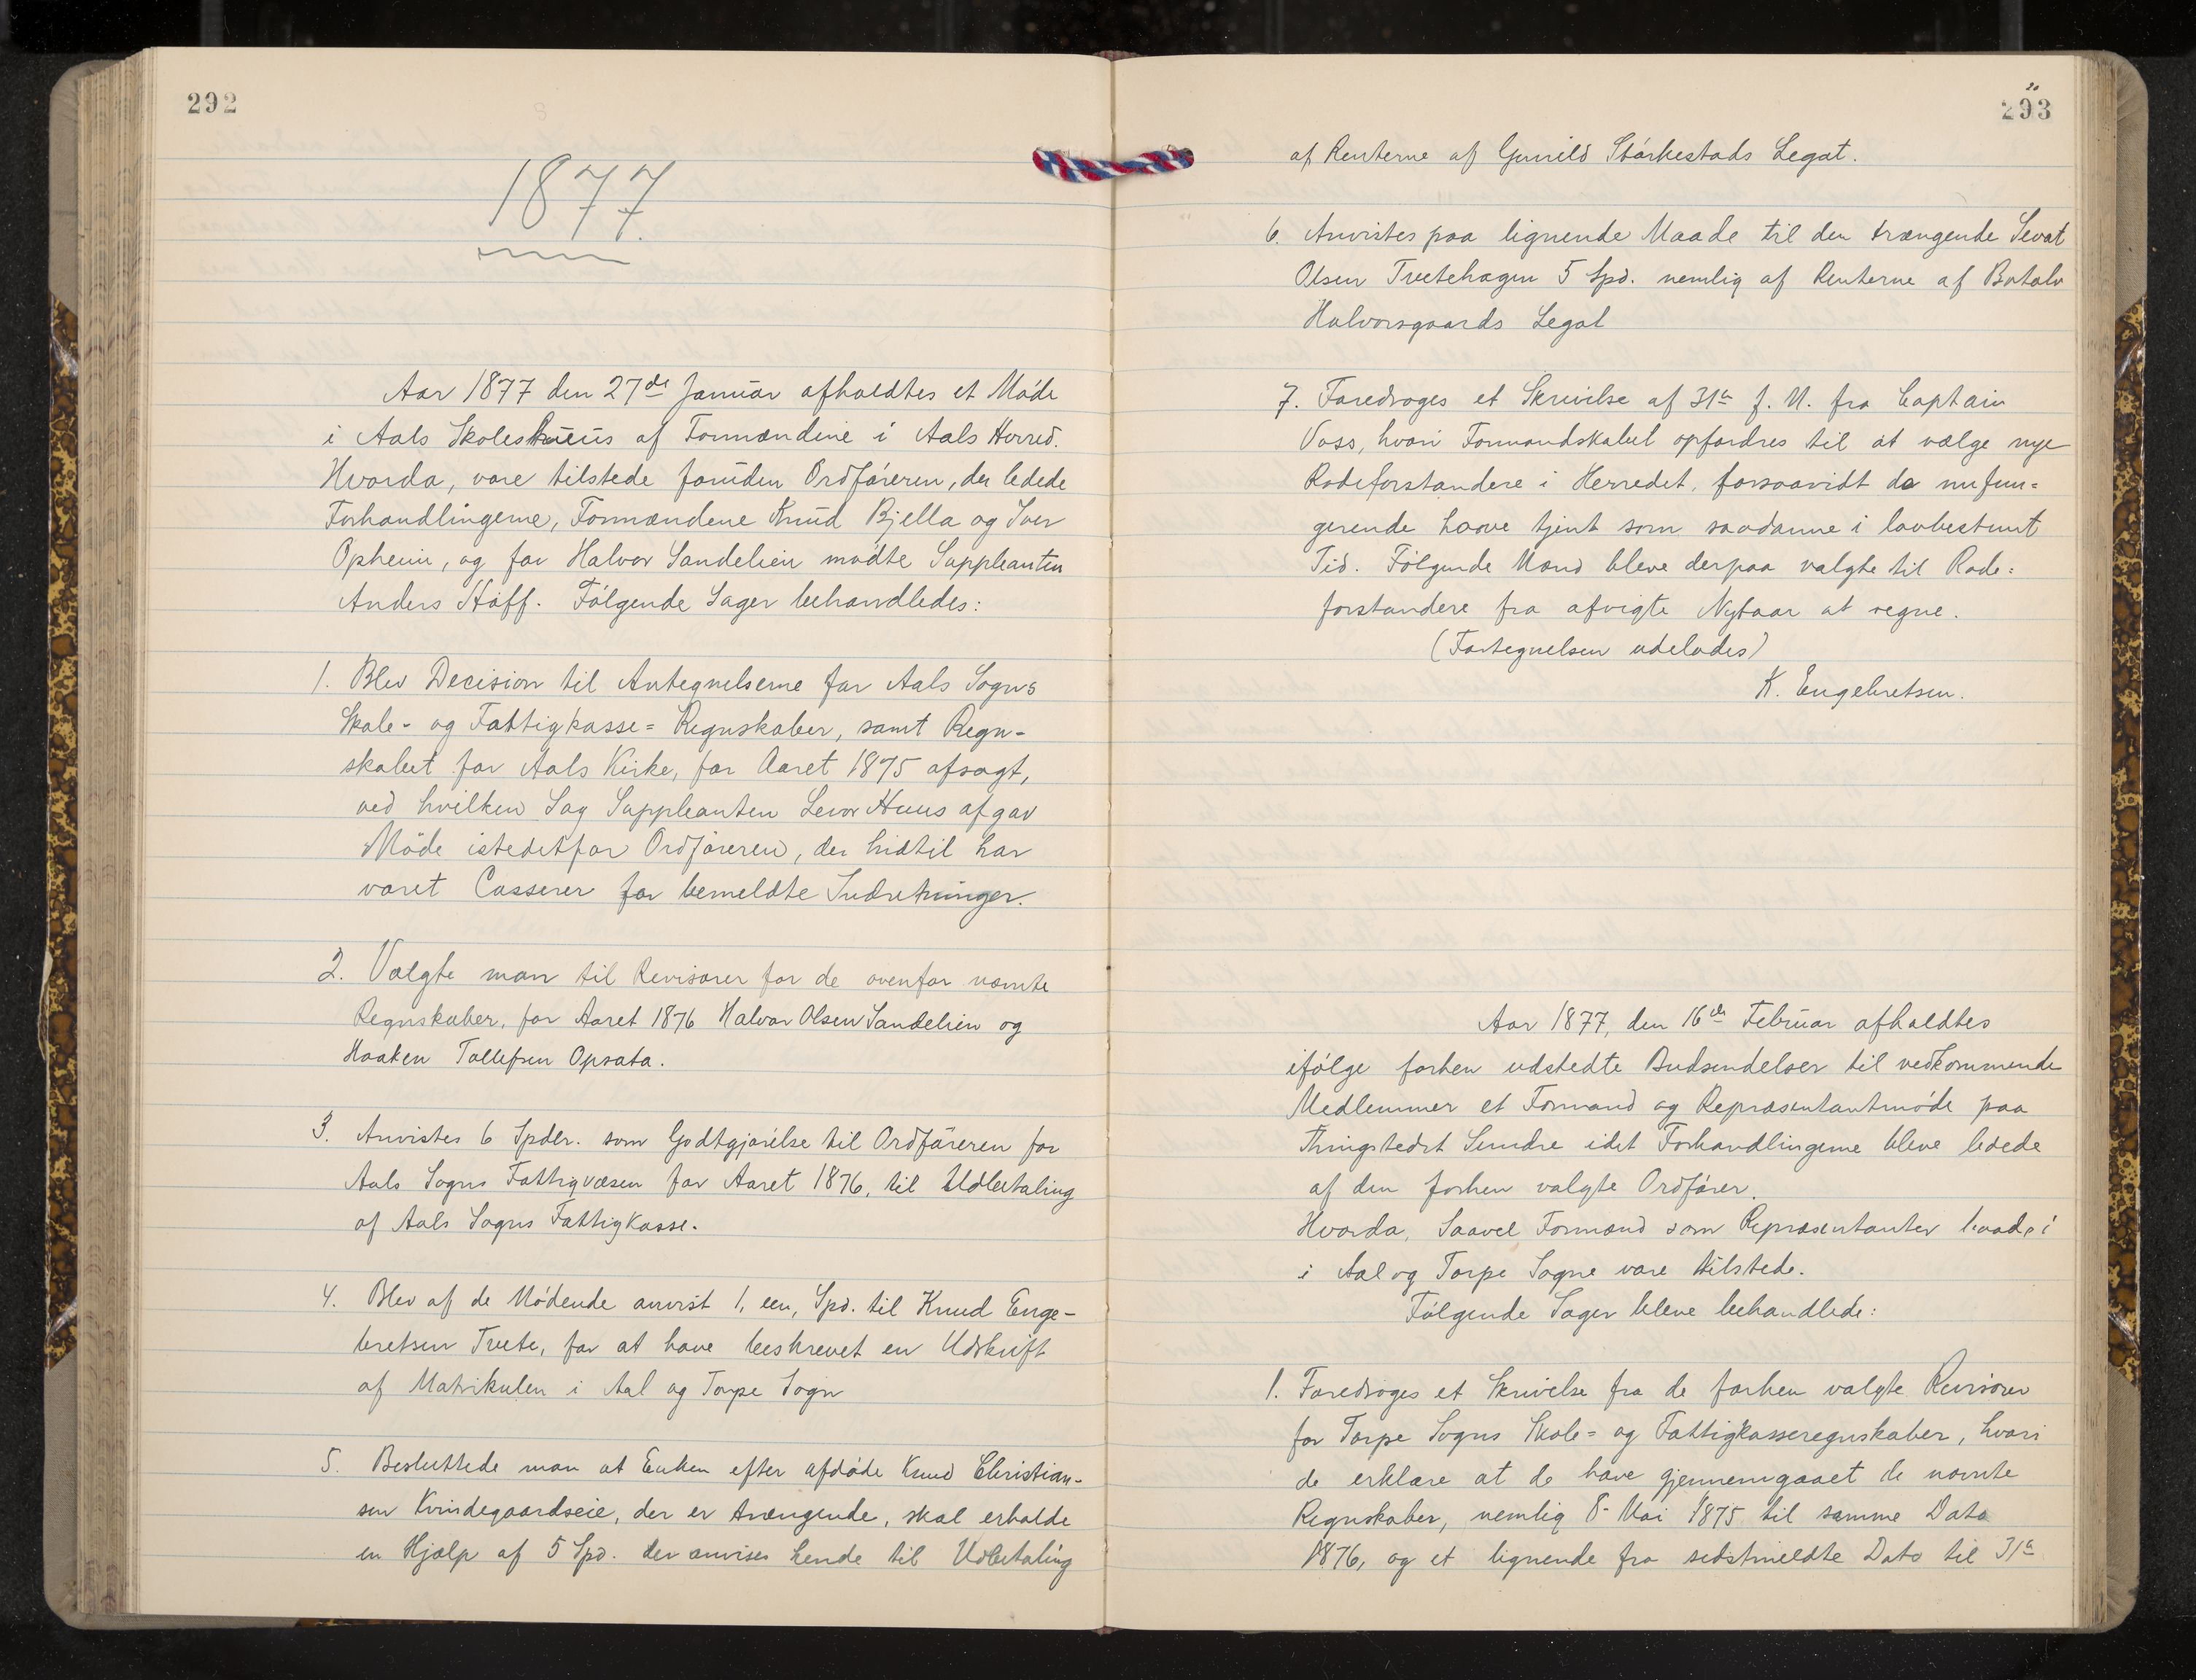 292
1877.
Aar 1877 den 27de Januar afholdtes et Møde
i Aals Skoleshuus af Formændene i Aals Herred.
Hvorda, vare tilstede foruden Ordføreren, der ledede
Forhandlingerne, Formændene Knud Bjella og Iver
Opheim, og for Halvor Sandelien mødte Suppleanten
Anders Hoff. Følgende Sager behandledes:
1. Blev Decision til Antegnelserne for Aals Sogns
Skole- og Fattigkasse= Regnskaber, samt Regn-
skabet for Aals Kirke, for Aaret 1875 afsagt,
ved hvilken Sag Suppleanten Levor Huus afgav
Møde istedetfor Ordføreren, der hidtil har
været Casserer for bemeldte Indretninger.
2. Valgte man til Revisorer for de ovenfor nævnte
Regnskaber, for Aaret 1876 Halvor Olsen Sandelien og
Haaken Tollefsen Opsata.
3. Anvistes 6 Spdlr. som Godtgjørelse til Ordføreren for
Aals Sogns Fattigvæsen for Aaret 1876, til Udbetaling
af Aals Sogns Fattigkasse.
4. Blev af de Mødende anvist 1, een, Spd. til Knud Enge-
bretsen Tvete, for at have beskrevet en Udskrift
af Matrikulen i Aal og Torpe Sogn
5. Besluttede man at Enken efter afdøde Knud Christian-
sen Kvindegaardseie, der er trængende, skal erholde
en Hjælp af 5 Spd. der anvises hende til Udbetaling
293
af Renterne af Gunild Stårkestads Legat.
6. Anvistes paa lignende Maade til den trængende Sevat
Olsen Tvetehagen 5 Spd. nemlig af Renterne af Botolv
Halvorsgaards Legat
7. Foredroges et Skrivelse af 31te f. M. fra Captain
Voss, hvori Formandskabet opfordres til at vælge nye
Rodeforstandere i Herredet, forsaavidt de nufun=
gerende have tjent som saadanne i lovbestemt
Tid. Følgende Mænd bleve derpaa valgte til Rode=
forstandere fra afvigte Nytaar at regne.
(Fortegnelsen udelades)
K. Engebretsen.
Aar 1877, den 16de Februar afholdtes
ifølge forhen udstedte Budsendelser til vedkommende
Medlemmer et Formand og Repræsentantmøde paa
Thingstedet Sundre idet Forhandlingerne bleve ledede
af den forhen valgte Ordfører.
Hvorda, Saavel Formænd som Repræsentanter baade i
i Aal og Torpe Sogne vare tilstede.
Følgende Sager bleve behandlede:
1. Foredroges et Skrivelse fra de forhen valgte Revisorer
for Torpe Sogns Skole= og Fattigkasseregnskaber, hvori
de erklære at de have gjennemgaaet de nævnte
Regnskaber, nemlig 8- Mai 1875 til samme Dato
1876, og et lignende fra sidstmeldte Dato til 31te